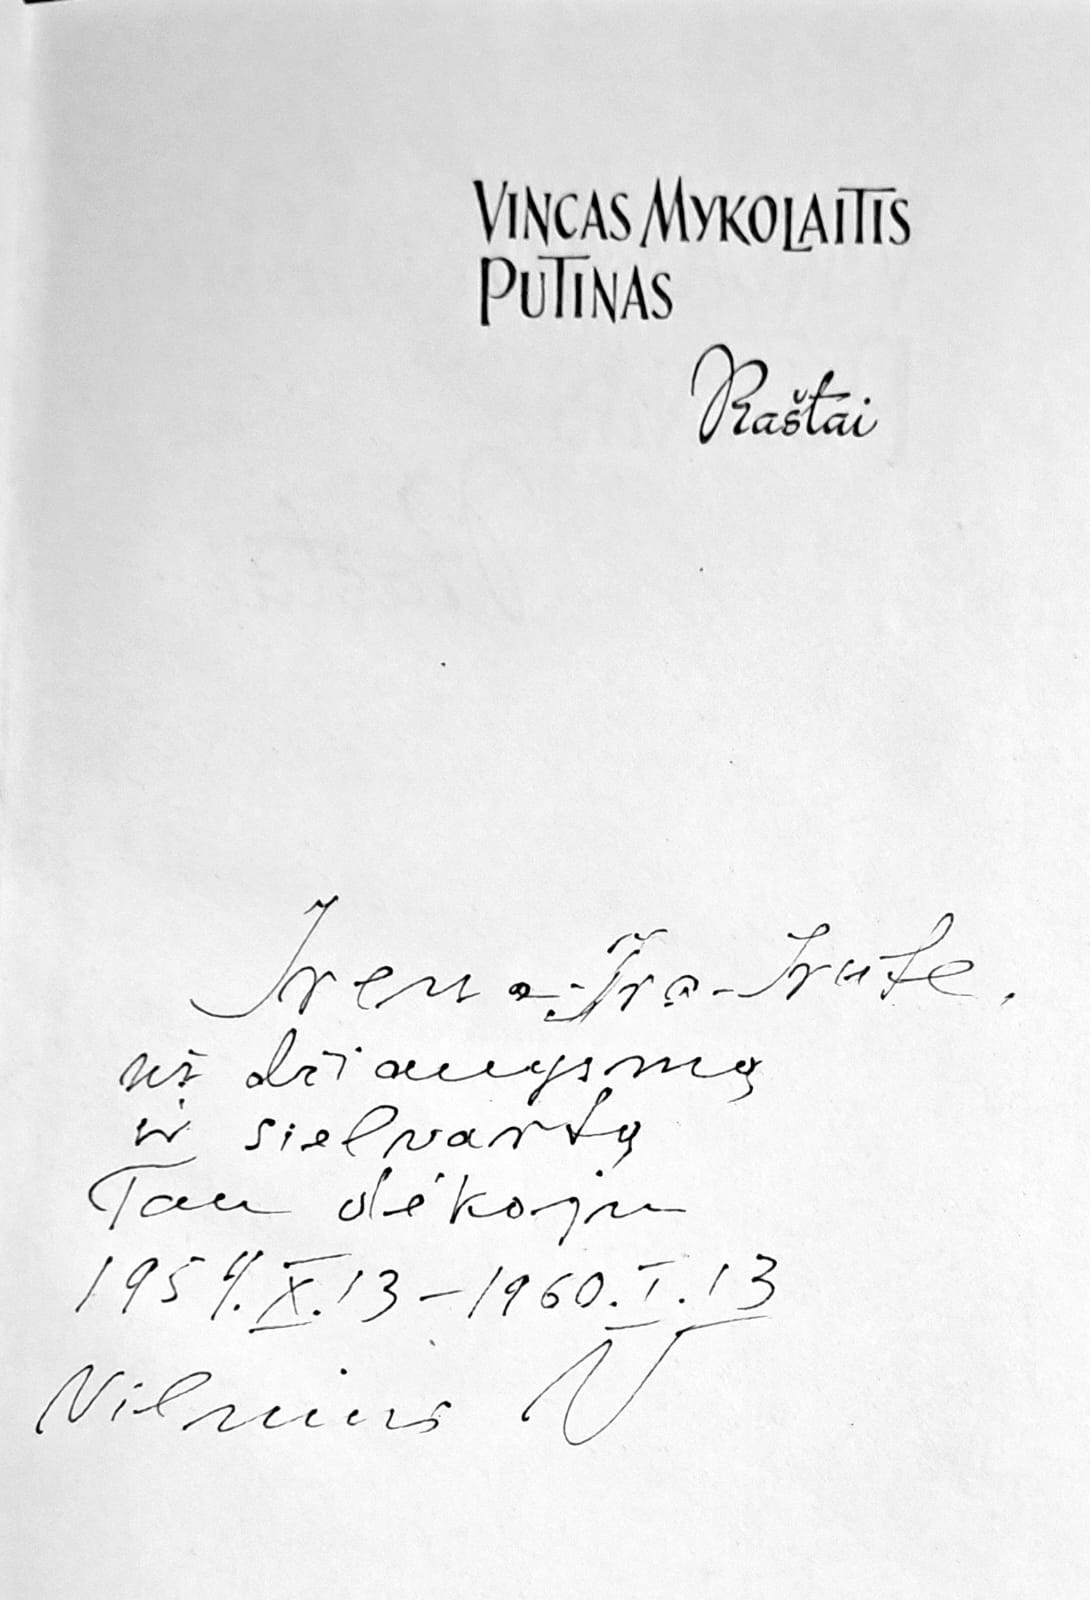 VINCAS MYKOLAITIS
PUTINAS
Raštai
Irena-Ira-Irute,
už džiaugsmą
ir sielvartą
Tau dėkoju
1954.X.13-1960.I.13
Vilnius V